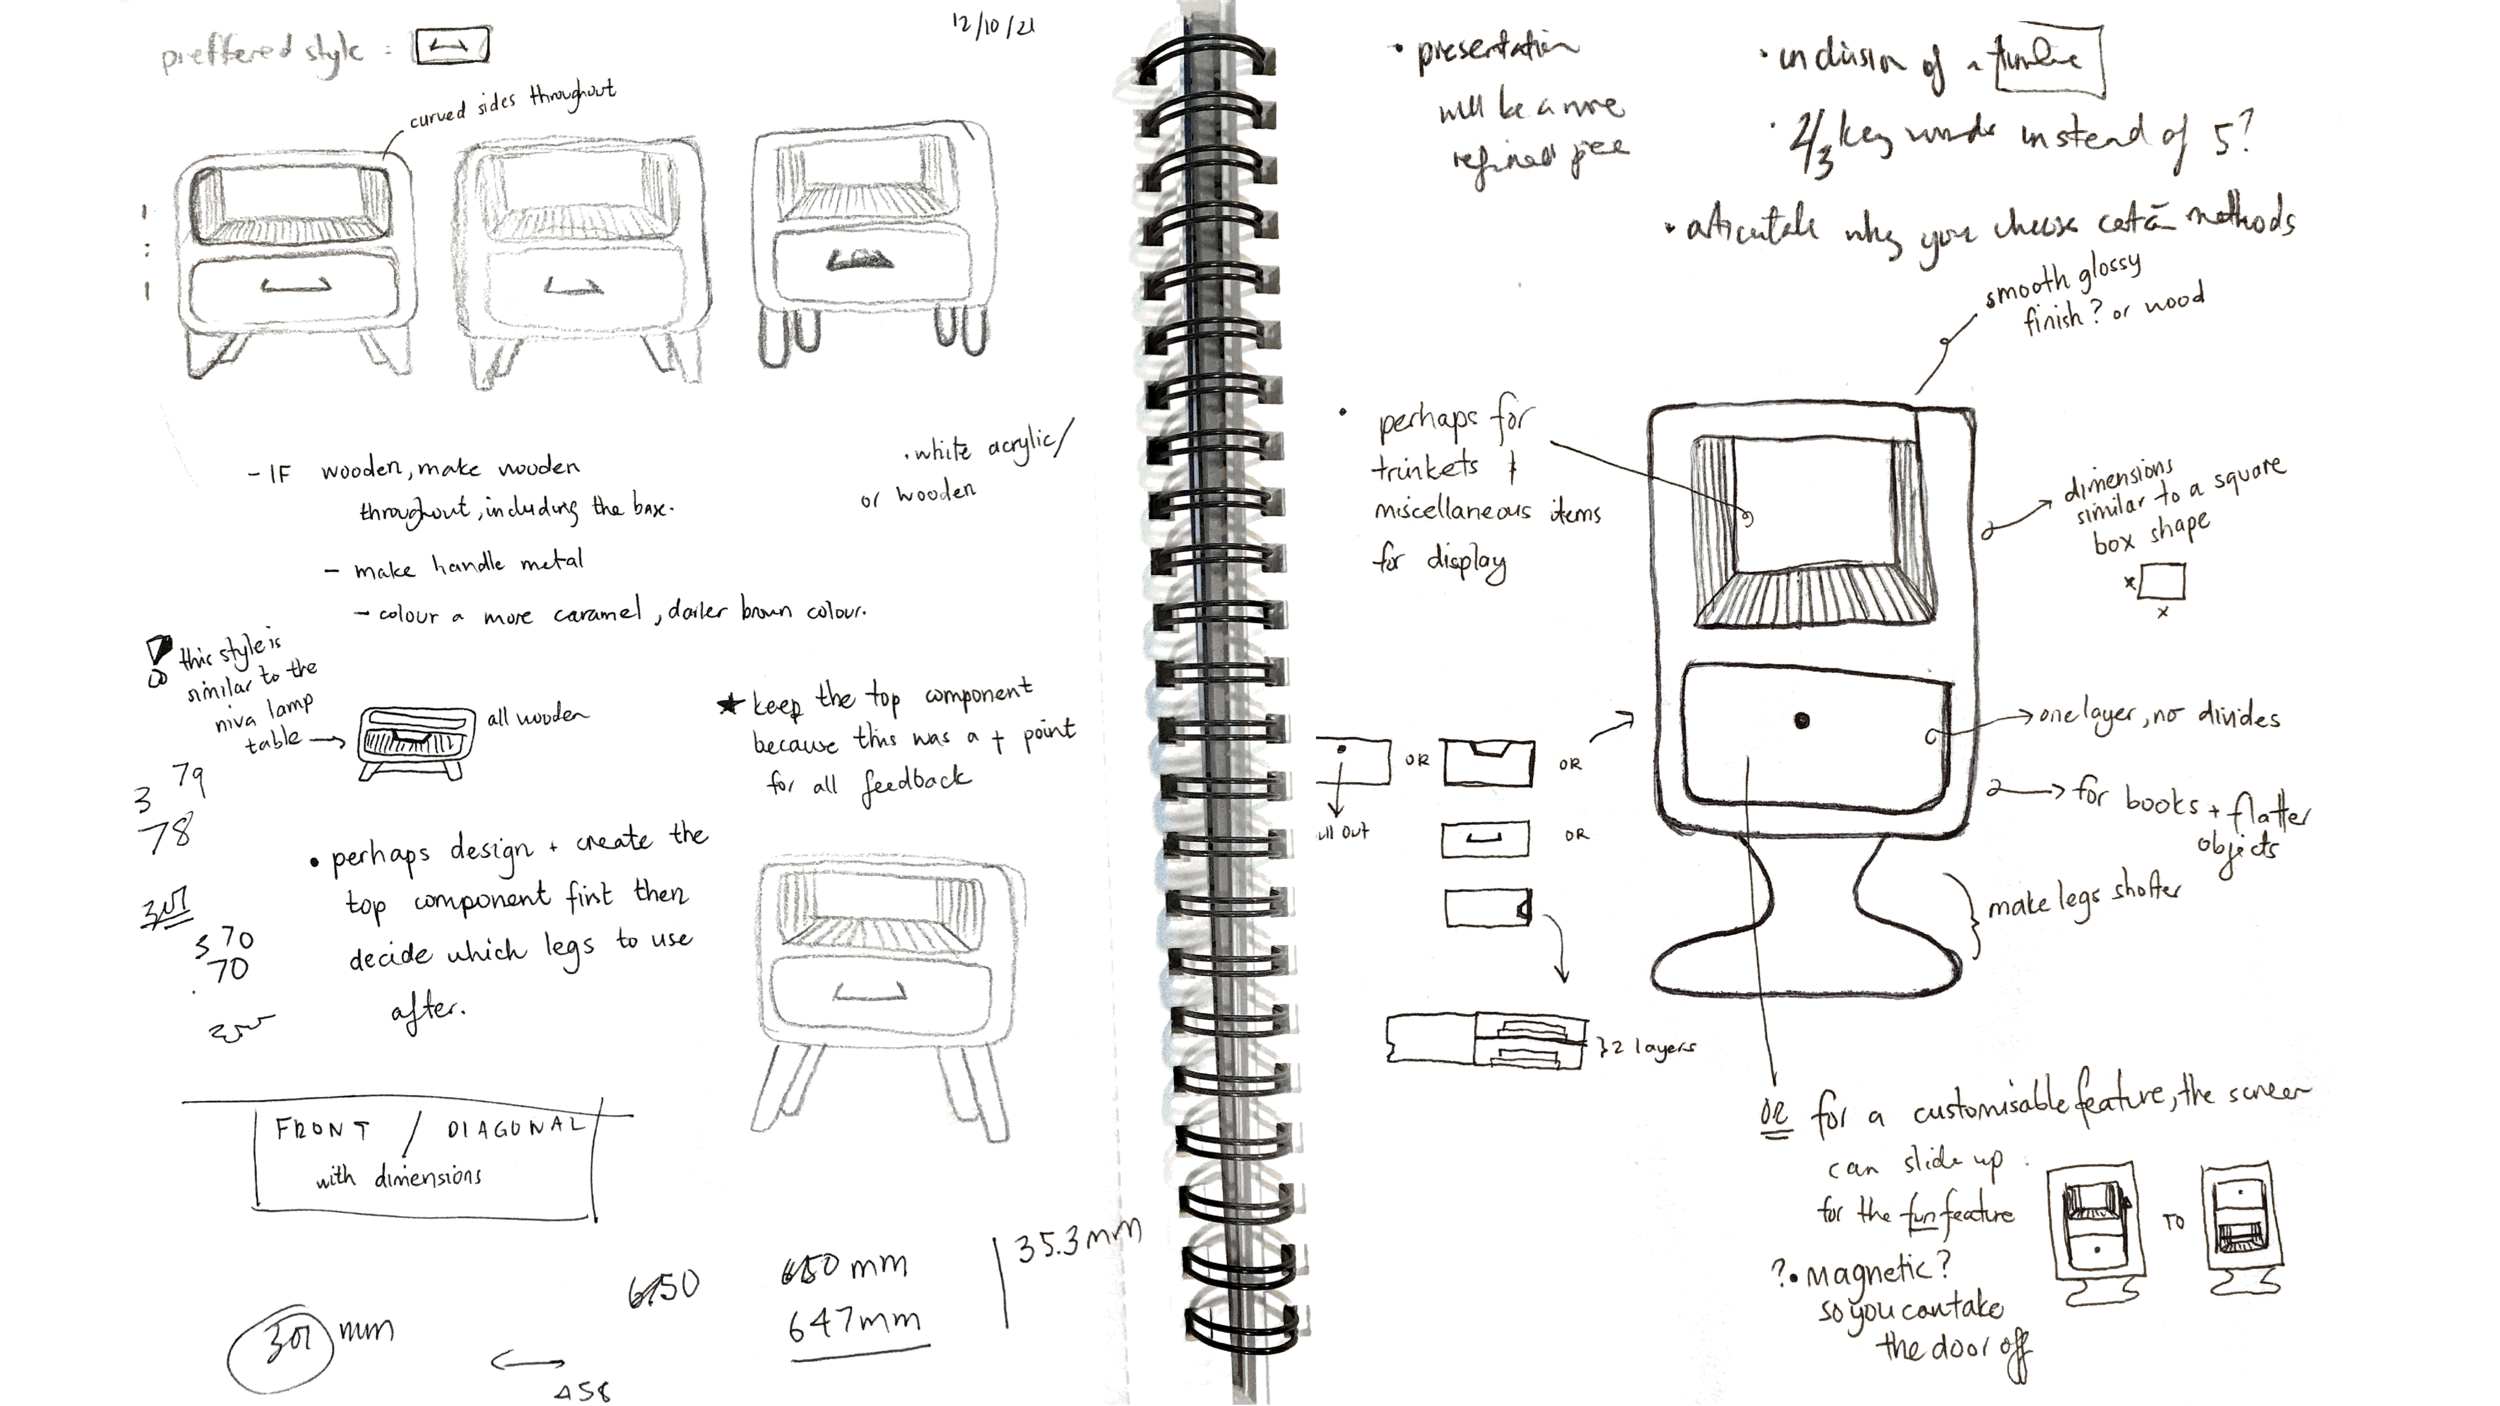 12/10/21
preffered style :
curved sides throughout
- IF wooden, make wooden
throughout, including the box.
- make handle metal
- colour a more caramel, darker brown colour.
• white acrylic/
or wooden
this style is
similar to the
niva lamp
table
all wooden
★ keep the top component
because this was a + point
for all feedback
3 79
78
• perhaps design + create the
top component first then
decide which legs to use
after.
70
70
FRONT / DIAGONAL
with dimensions
mm
650
650 mm
647mm
35.3mm
458
• presentation
will be a more
refined
• inclusion of a timeline
• 2/3 key words instead of 5?
• articulate why you choose methods
smooth glossy
finish? or wood
• perhaps for
trinkets +
miscellaneous items
for display
dimensions
similar to a square
box shape
x
x
one layer, no divides
for books + flatter
objects
make legs shorter
OR
OR
ull out
OR
}2 layers
OR for a customisable feature, the screen
can slide up
for the fun feature
TO
?• magnetic?
so you can take
the door off